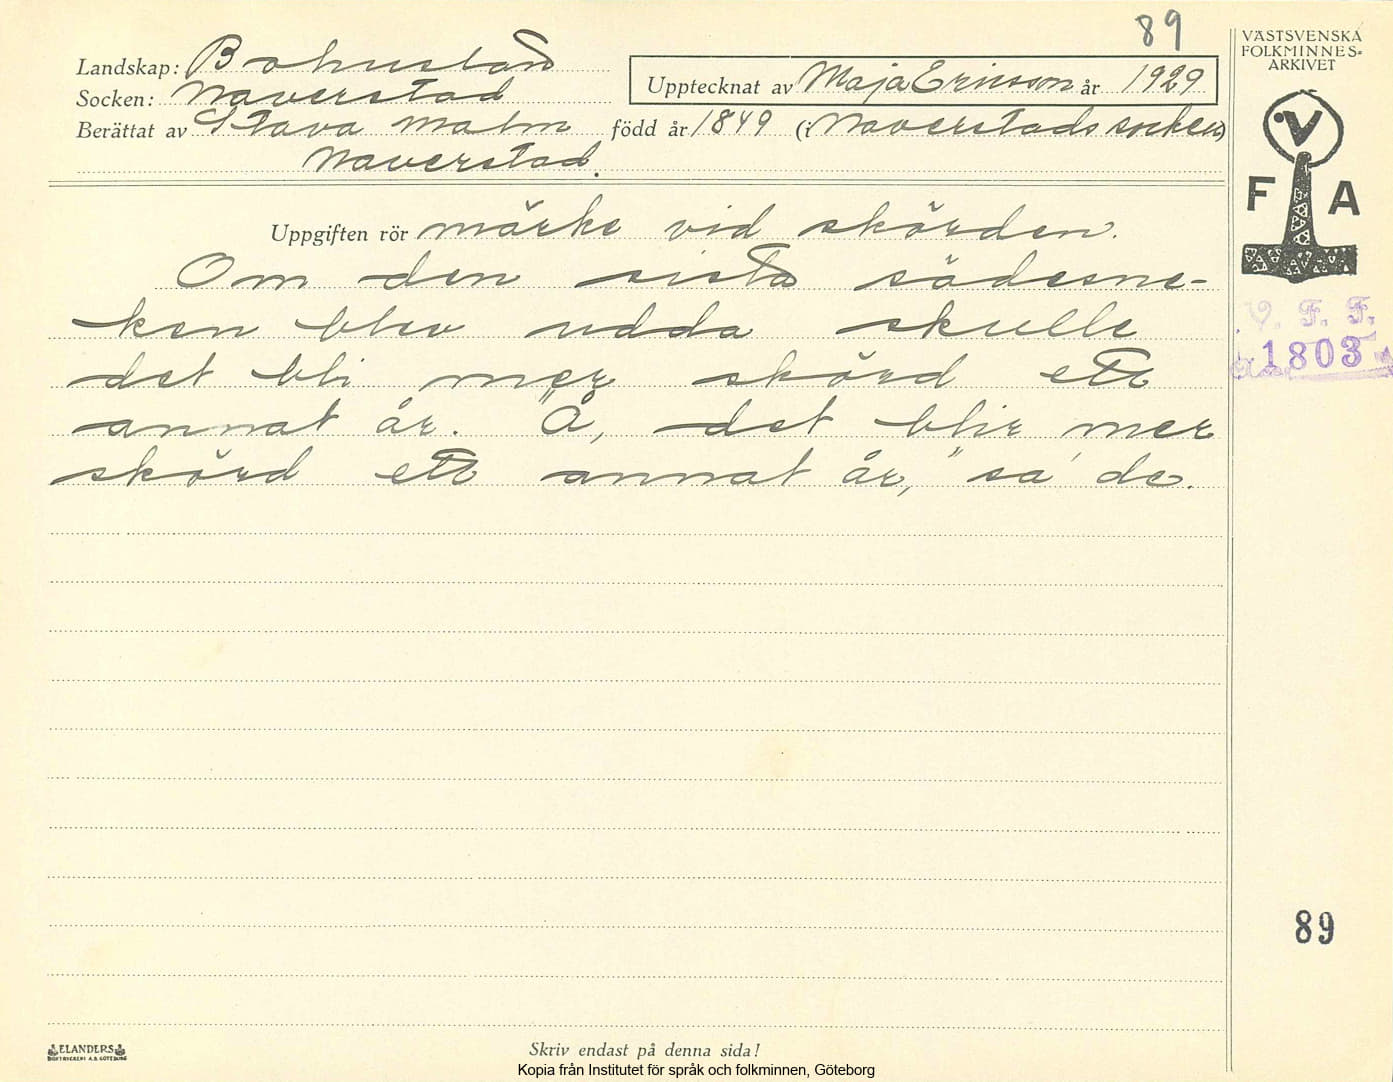 89
VÄSTSVENSKA
FOLKMINNES-
ARKIVET
Landskap: Bohuslän
Upptecknat av Maja Ericsson år 1929
Socken: Naverstad
Berättat av Stava Malm född år 1849 (i Naverstads socken)
Naverstad.
V
F A
Uppgiften rör märke vid skörden.
Om den sista sädesne-
ken blev udda skulle
det bli mer skörd ett
annat år. "Å, det blir mer
skörd ett annat år," sa' de.
V. F. F.
1803
89
ELANDERS
BOKTRYCKERI A.B. GÖTEBORG
Skriv endast på denna sida!
Kopia från Institutet för språk och folkminnen, Göteborg